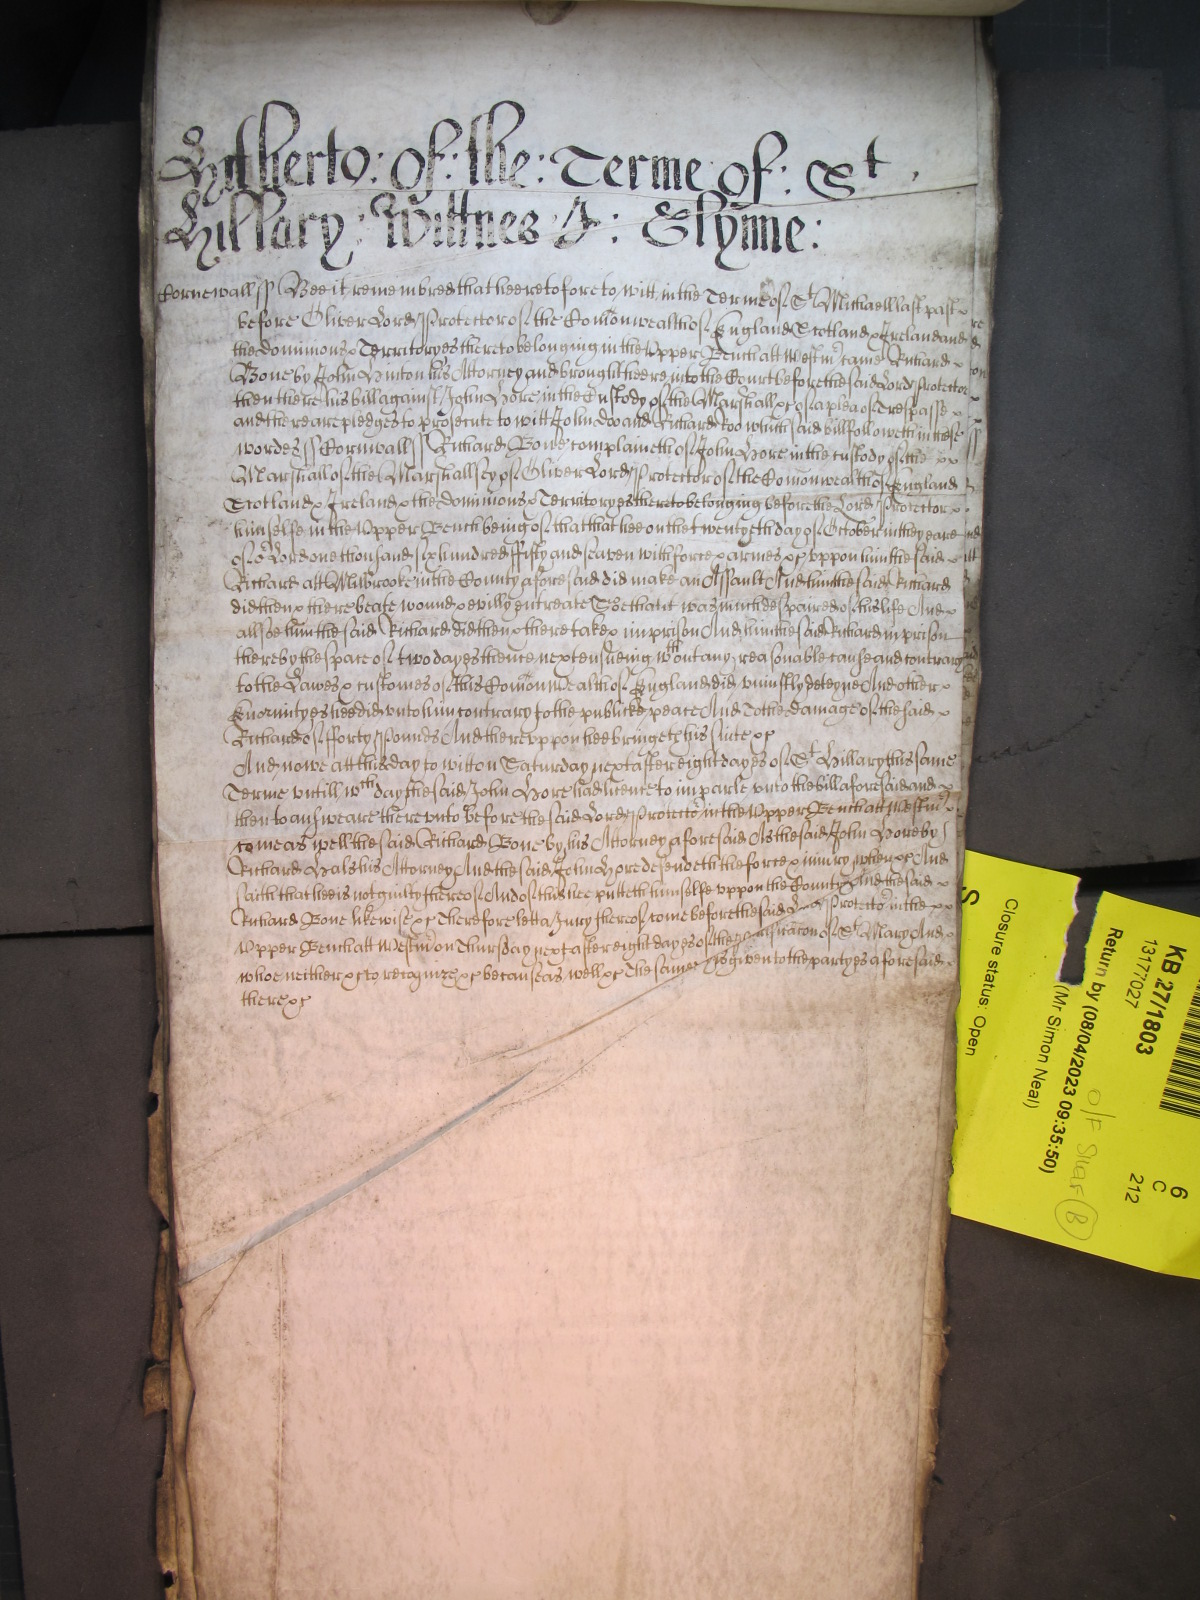 Hitherto: of: the: Terme of: St
Hillary: Wittnes J: Glynne:
Cornewall ss Bee it remembred that heeretofore to witt in the Terme of St Michaell last past x
before Oliver Lord Protector of the Comonwealth of England Scotland x Ireland and
the dominions x Territoryes thereto belonging in the Upper Bench att Westmr came Richard x
Bone by John Hinton his Attorney and brought heere into the Court before the said Lord Protector
then there his bill against John Hore in the Custody of the Marshall xc of a plea of Trespasse x
and there are pledges to prosecute to witt John Doo and Richard Roo which said bill followeth in these
wordes ss Cornwall ss Richard Bone complaineth of John Hore in the custody of the xx
Marshall of the Marshallsey of Oliver Lord Protector of the Comonwealth of England
Scotland x Ireland x the dominions x Territoryes thereto belonging before the Lord Protector x
himselfe in the Upper Bench being of that that hee on the twentyeth day of October in the yeare
of or Lord one thousand six hundred fifty and seaven with force x armes xc uppon him the said
Richard att Milbrooke in the County aforesaid did make an Assault And him the said Richard
did then x there beate wound x evilly entreate Soe that it was much despaired of his life And x
allsoe him the said Richard did then x there take x imprison And him the said Richard in prison
there by the space of two dayes thence next ensueing wthout any reasonable cause and contrary
to the Lawes x customes of this Comonwealth of England did uniustly deteyne And other x
Enormityes hee did unto him contrary to the publicke peace And To the damage of the said x
Richard of fforty Pounds And thereuppon hee bringeth his suite xc
And nowe att this day to witt on Saturday next after eight dayes of St Hillary this same
Terme untill wch day the said John Hore had licence to imparle unto the bill aforesaid and x
then to answeare thereunto before the said Lord Protector in the Upper Bench att Westmr
come as well the said Richard Bone by his Attorney aforesaid As the said John Hore by
Richard Hals his Attorney And the said John Hore defendeth the force x iniury when xc And
saith that hee is not guilty thereof And of this hee putteth himselfe uppon the County And the said x
Richard Bone likewise xc Therefore lett a Jury thereof come before the said Lord Protector in the xx
Upper Bench att Westmr on Thursday next after eight dayes of the purificacon of St Mary And x
whoe neither xc to recognize xc because as well xc The same is given to the partyes aforesaid
there xc
S
Closure status: Open
KB 27/1803
13177027
Return by (08/04/2023 09:35:50)
(Mr Simon Neal)
O/F Shelf B
6
C
212